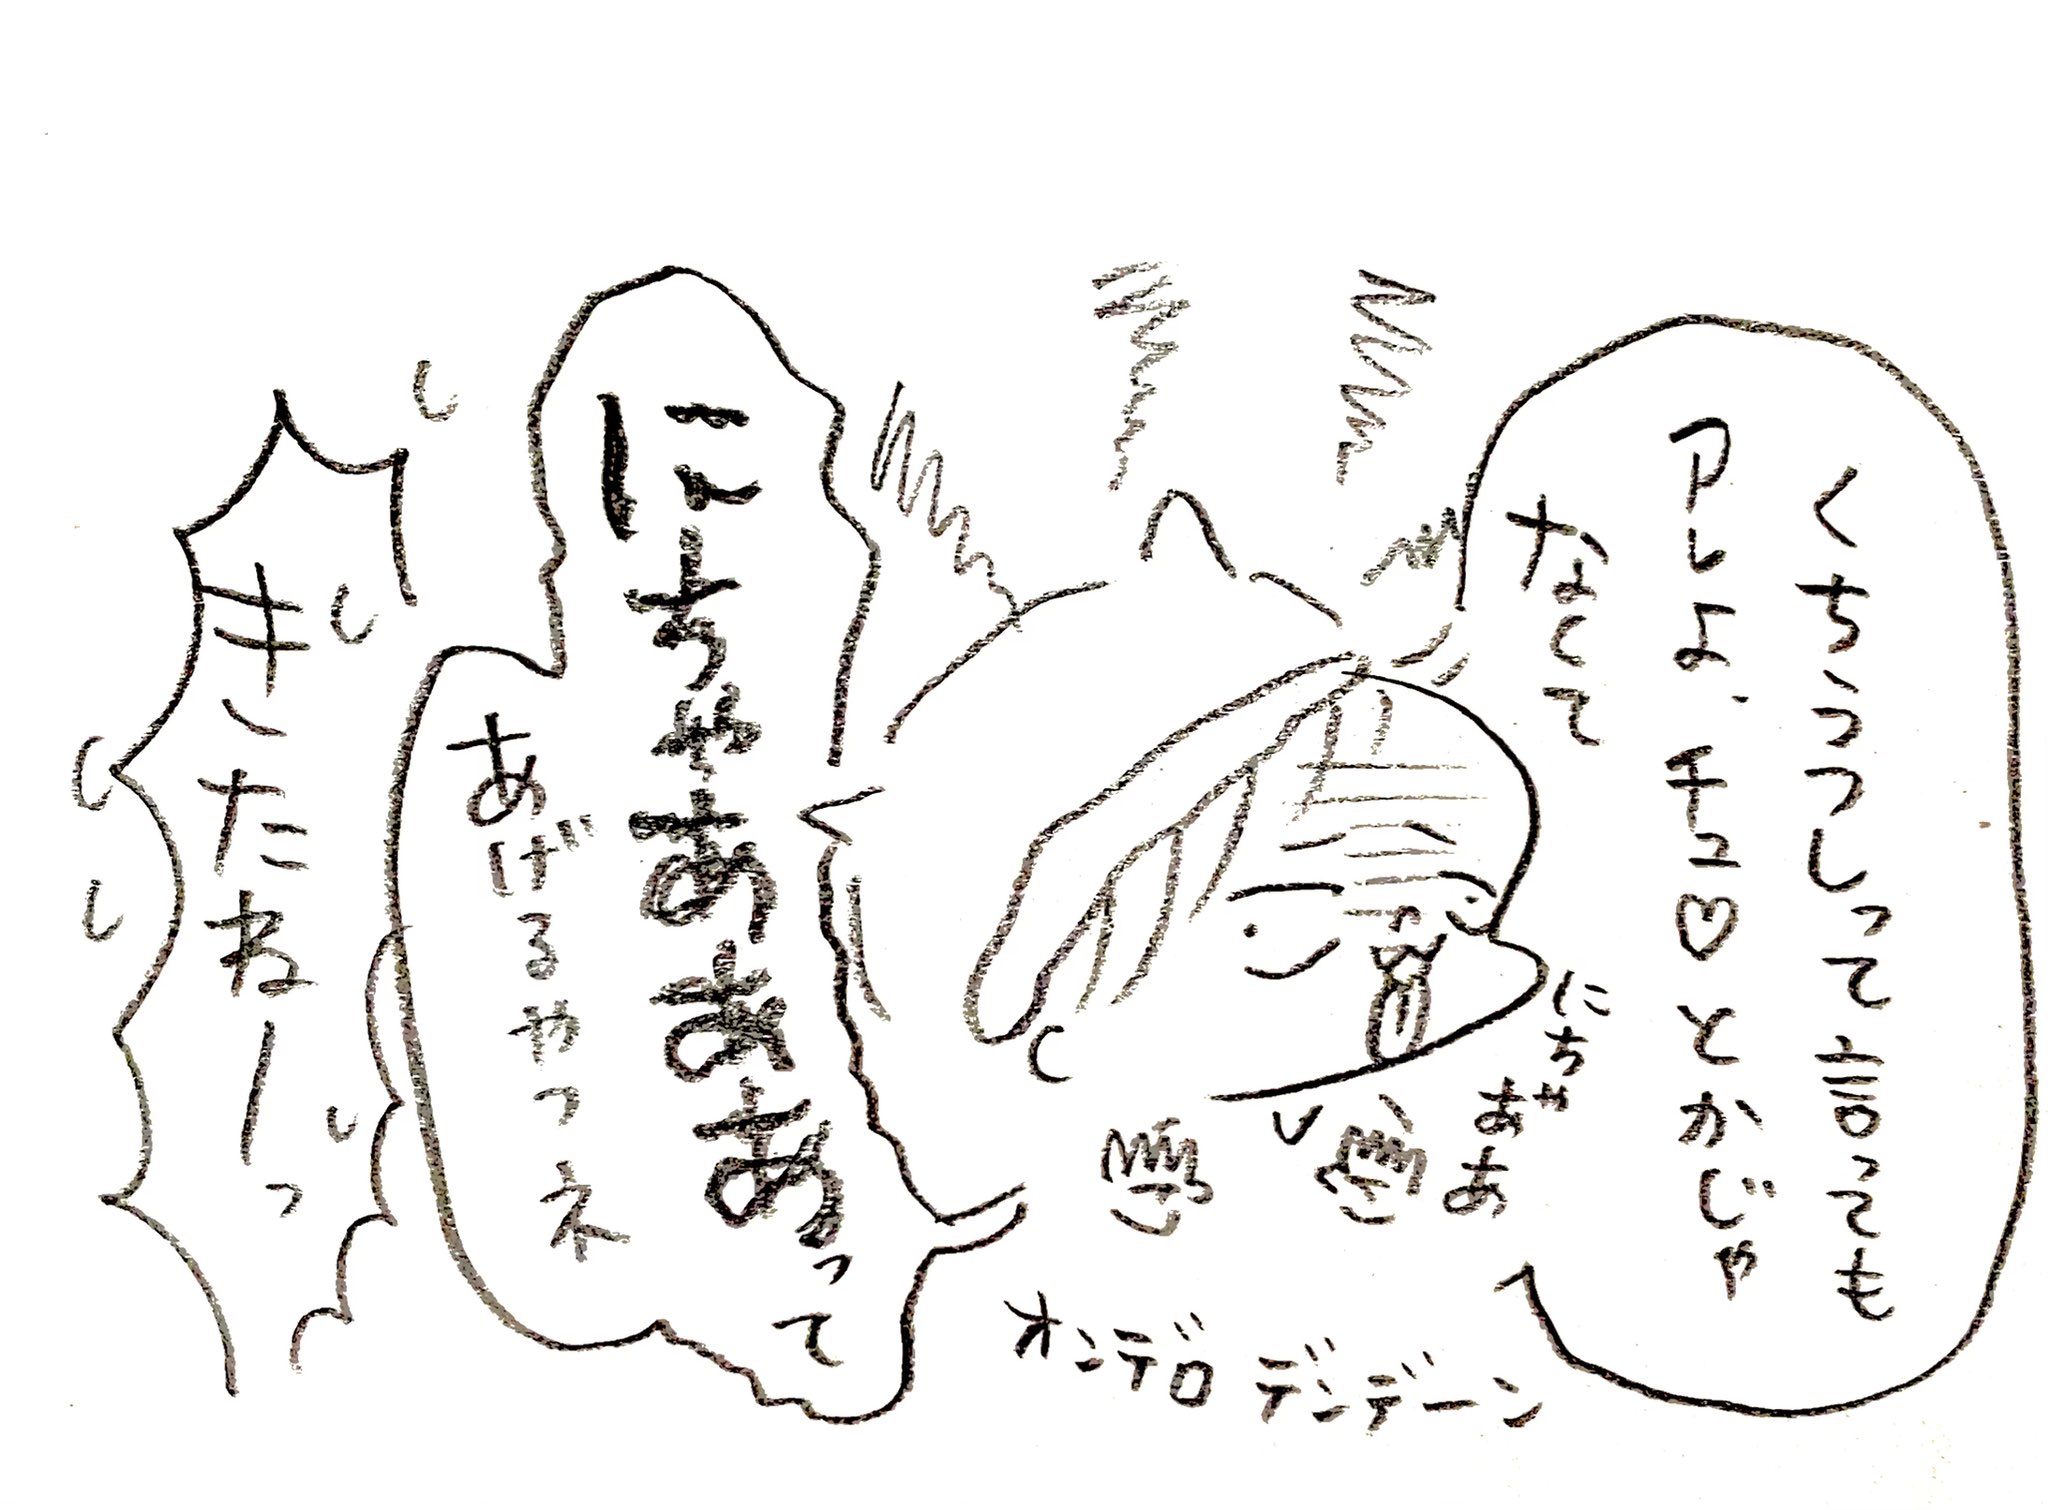 くちうつしって言っても
アレよ、チュ♡とかじゃ
なくて
にちゃ
ああ
にちゃあああって
あげるやつネ
きたねーっ
オンデロデンデーン